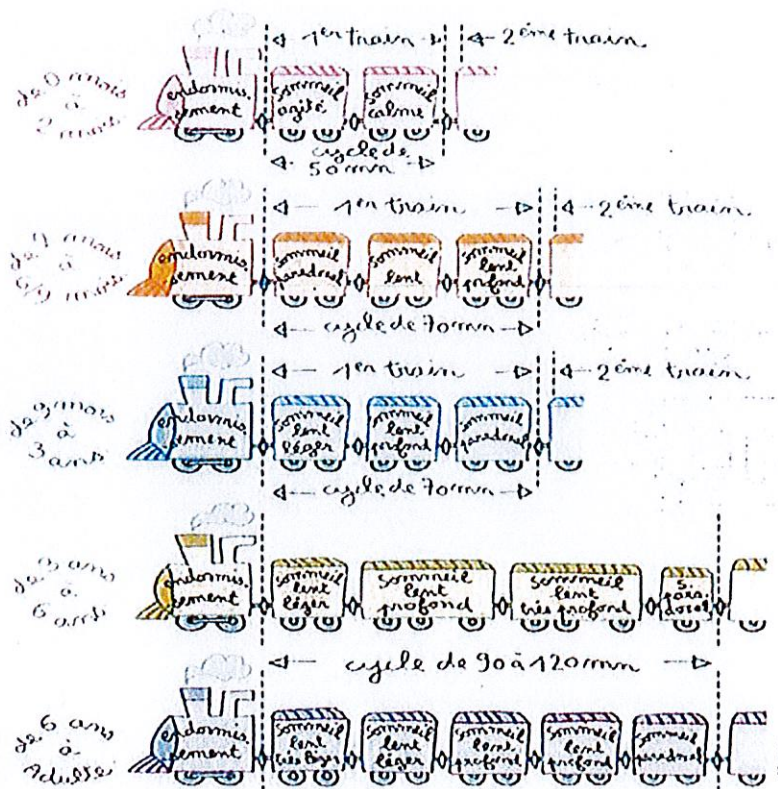 1er train
2ème train
de 0 mois
à
2 mois
endormis-
sement
sommeil
agité
sommeil
calme
cycle de
50mn
1er train
2ème train
mois
à
6/9 mois
endormis-
sement
sommeil
paradoxal
sommeil
lent
sommeil
lent
profond
cycle de 70mn
1er train
2ème train
de 9 mois
à
3 ans
endormis-
sement
sommeil
lent
léger
sommeil
lent
profond
sommeil
paradoxal
cycle de 70mn
de 3 ans
à
6 ans
endormis-
sement
sommeil
lent
léger
sommeil
lent
profond
sommeil
lent
très profond
s.
para-
doxal
cycle de 90 à 120mn
de 6 ans
à
Adulte
endormis-
sement
sommeil
lent
très léger
sommeil
lent
léger
sommeil
lent
profond
sommeil
lent
profond
sommeil
paradoxal